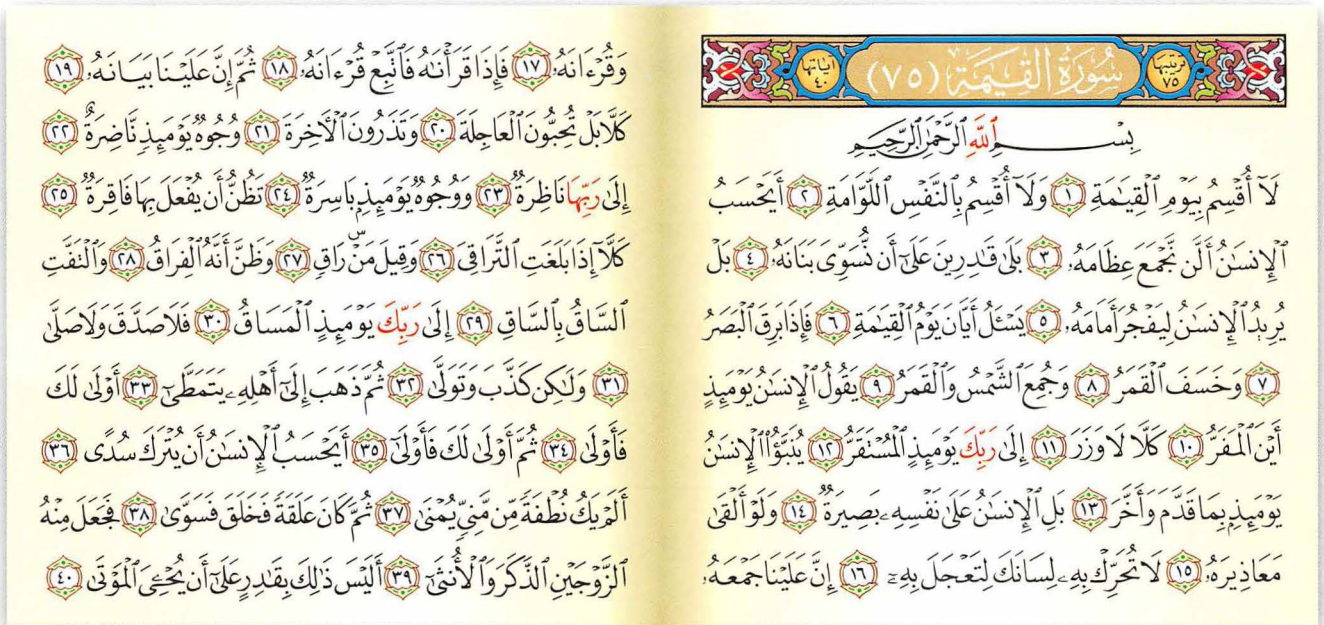 ترتيبها ٧٥ سُورَةُ القِيَٰمَةِ (٧٥) آياتها ٤٠
بِسۡمِ ٱللَّهِ ٱلرَّحۡمَٰنِ ٱلرَّحِيمِ
لَآ أُقۡسِمُ بِيَوۡمِ ٱلۡقِيَٰمَةِ ١ وَلَآ أُقۡسِمُ بِٱلنَّفۡسِ ٱللَّوَّامَةِ ٢ أَيَحۡسَبُ
ٱلۡإِنسَٰنُ أَلَّن نَّجۡمَعَ عِظَامَهُۥ ٣ بَلَىٰ قَٰدِرِينَ عَلَىٰٓ أَن نُّسَوِّيَ بَنَانَهُۥ ٤ بَلۡ
يُرِيدُ ٱلۡإِنسَٰنُ لِيَفۡجُرَ أَمَامَهُۥ ٥ يَسۡـَٔلُ أَيَّانَ يَوۡمُ ٱلۡقِيَٰمَةِ ٦ فَإِذَا بَرِقَ ٱلۡبَصَرُ
٧ وَخَسَفَ ٱلۡقَمَرُ ٨ وَجُمِعَ ٱلشَّمۡسُ وَٱلۡقَمَرُ ٩ يَقُولُ ٱلۡإِنسَٰنُ يَوۡمَئِذٍ
أَيۡنَ ٱلۡمَفَرُّ ١٠ كَلَّا لَا وَزَرَ ١١ إِلَىٰ رَبِّكَ يَوۡمَئِذٍ ٱلۡمُسۡتَقَرُّ ١٢ يُنَبَّؤُاْ ٱلۡإِنسَٰنُ
يَوۡمَئِذِۭ بِمَا قَدَّمَ وَأَخَّرَ ١٣ بَلِ ٱلۡإِنسَٰنُ عَلَىٰ نَفۡسِهِۦ بَصِيرَةٞ ١٤ وَلَوۡ أَلۡقَىٰ
مَعَاذِيرَهُۥ ١٥ لَا تُحَرِّكۡ بِهِۦ لِسَانَكَ لِتَعۡجَلَ بِهِۦٓ ١٦ إِنَّ عَلَيۡنَا جَمۡعَهُۥ
وَقُرۡءَانَهُۥ ١٧ فَإِذَا قَرَأۡنَٰهُ فَٱتَّبِعۡ قُرۡءَانَهُۥ ١٨ ثُمَّ إِنَّ عَلَيۡنَا بَيَانَهُۥ ١٩
كَلَّا بَلۡ تُحِبُّونَ ٱلۡعَاجِلَةَ ٢٠ وَتَذَرُونَ ٱلۡأٓخِرَةَ ٢١ وُجُوهٞ يَوۡمَئِذٖ نَّاضِرَةٌ ٢٢
إِلَىٰ رَبِّهَا نَاظِرَةٞ ٢٣ وَوُجُوهٞ يَوۡمَئِذِۭ بَاسِرَةٞ ٢٤ تَظُنُّ أَن يُفۡعَلَ بِهَا فَاقِرَةٞ ٢٥
كَلَّآ إِذَا بَلَغَتِ ٱلتَّرَاقِيَ ٢٦ وَقِيلَ مَنۡۜ رَاقٖ ٢٧ وَظَنَّ أَنَّهُ ٱلۡفِرَاقُ ٢٨ وَٱلۡتَفَّتِ
ٱلسَّاقُ بِٱلسَّاقِ ٢٩ إِلَىٰ رَبِّكَ يَوۡمَئِذٍ ٱلۡمَسَاقُ ٣٠ فَلَا صَدَّقَ وَلَا صَلَّىٰ
٣١ وَلَٰكِن كَذَّبَ وَتَوَلَّىٰ ٣٢ ثُمَّ ذَهَبَ إِلَىٰٓ أَهۡلِهِۦ يَتَمَطَّىٰٓ ٣٣ أَوۡلَىٰ لَكَ
فَأَوۡلَىٰ ٣٤ ثُمَّ أَوۡلَىٰ لَكَ فَأَوۡلَىٰٓ ٣٥ أَيَحۡسَبُ ٱلۡإِنسَٰنُ أَن يُتۡرَكَ سُدًى ٣٦
أَلَمۡ يَكُ نُطۡفَةٗ مِّن مَّنِيّٖ يُمۡنَىٰ ٣٧ ثُمَّ كَانَ عَلَقَةٗ فَخَلَقَ فَسَوَّىٰ ٣٨ فَجَعَلَ مِنۡهُ
ٱلزَّوۡجَيۡنِ ٱلذَّكَرَ وَٱلۡأُنثَىٰٓ ٣٩ أَلَيۡسَ ذَٰلِكَ بِقَٰدِرٍ عَلَىٰٓ أَن يُحۡـِۧيَ ٱلۡمَوۡتَىٰ ٤٠